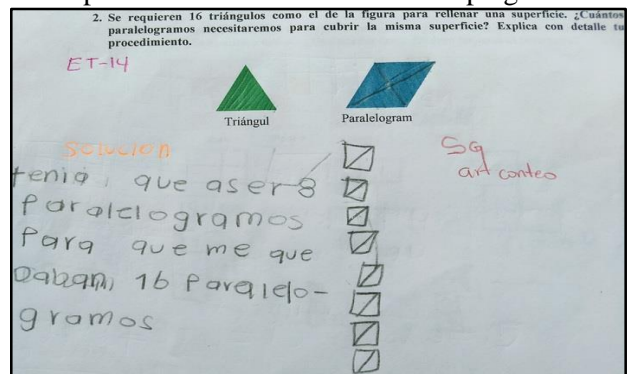 2. Se requieren 16 triángulos como el de la figura para rellenar una superficie. ¿Cuántos
paralelogramos necesitaremos para cubrir la misma superficie? Explica con detalle tu
procedimiento.
ET-14
Triángul
Paralelogram
Solucion
Sg
art conteo
tenia, que aser 8
Paralelogramos
Para que me que
Daban, 16 Paralelo-
gramos